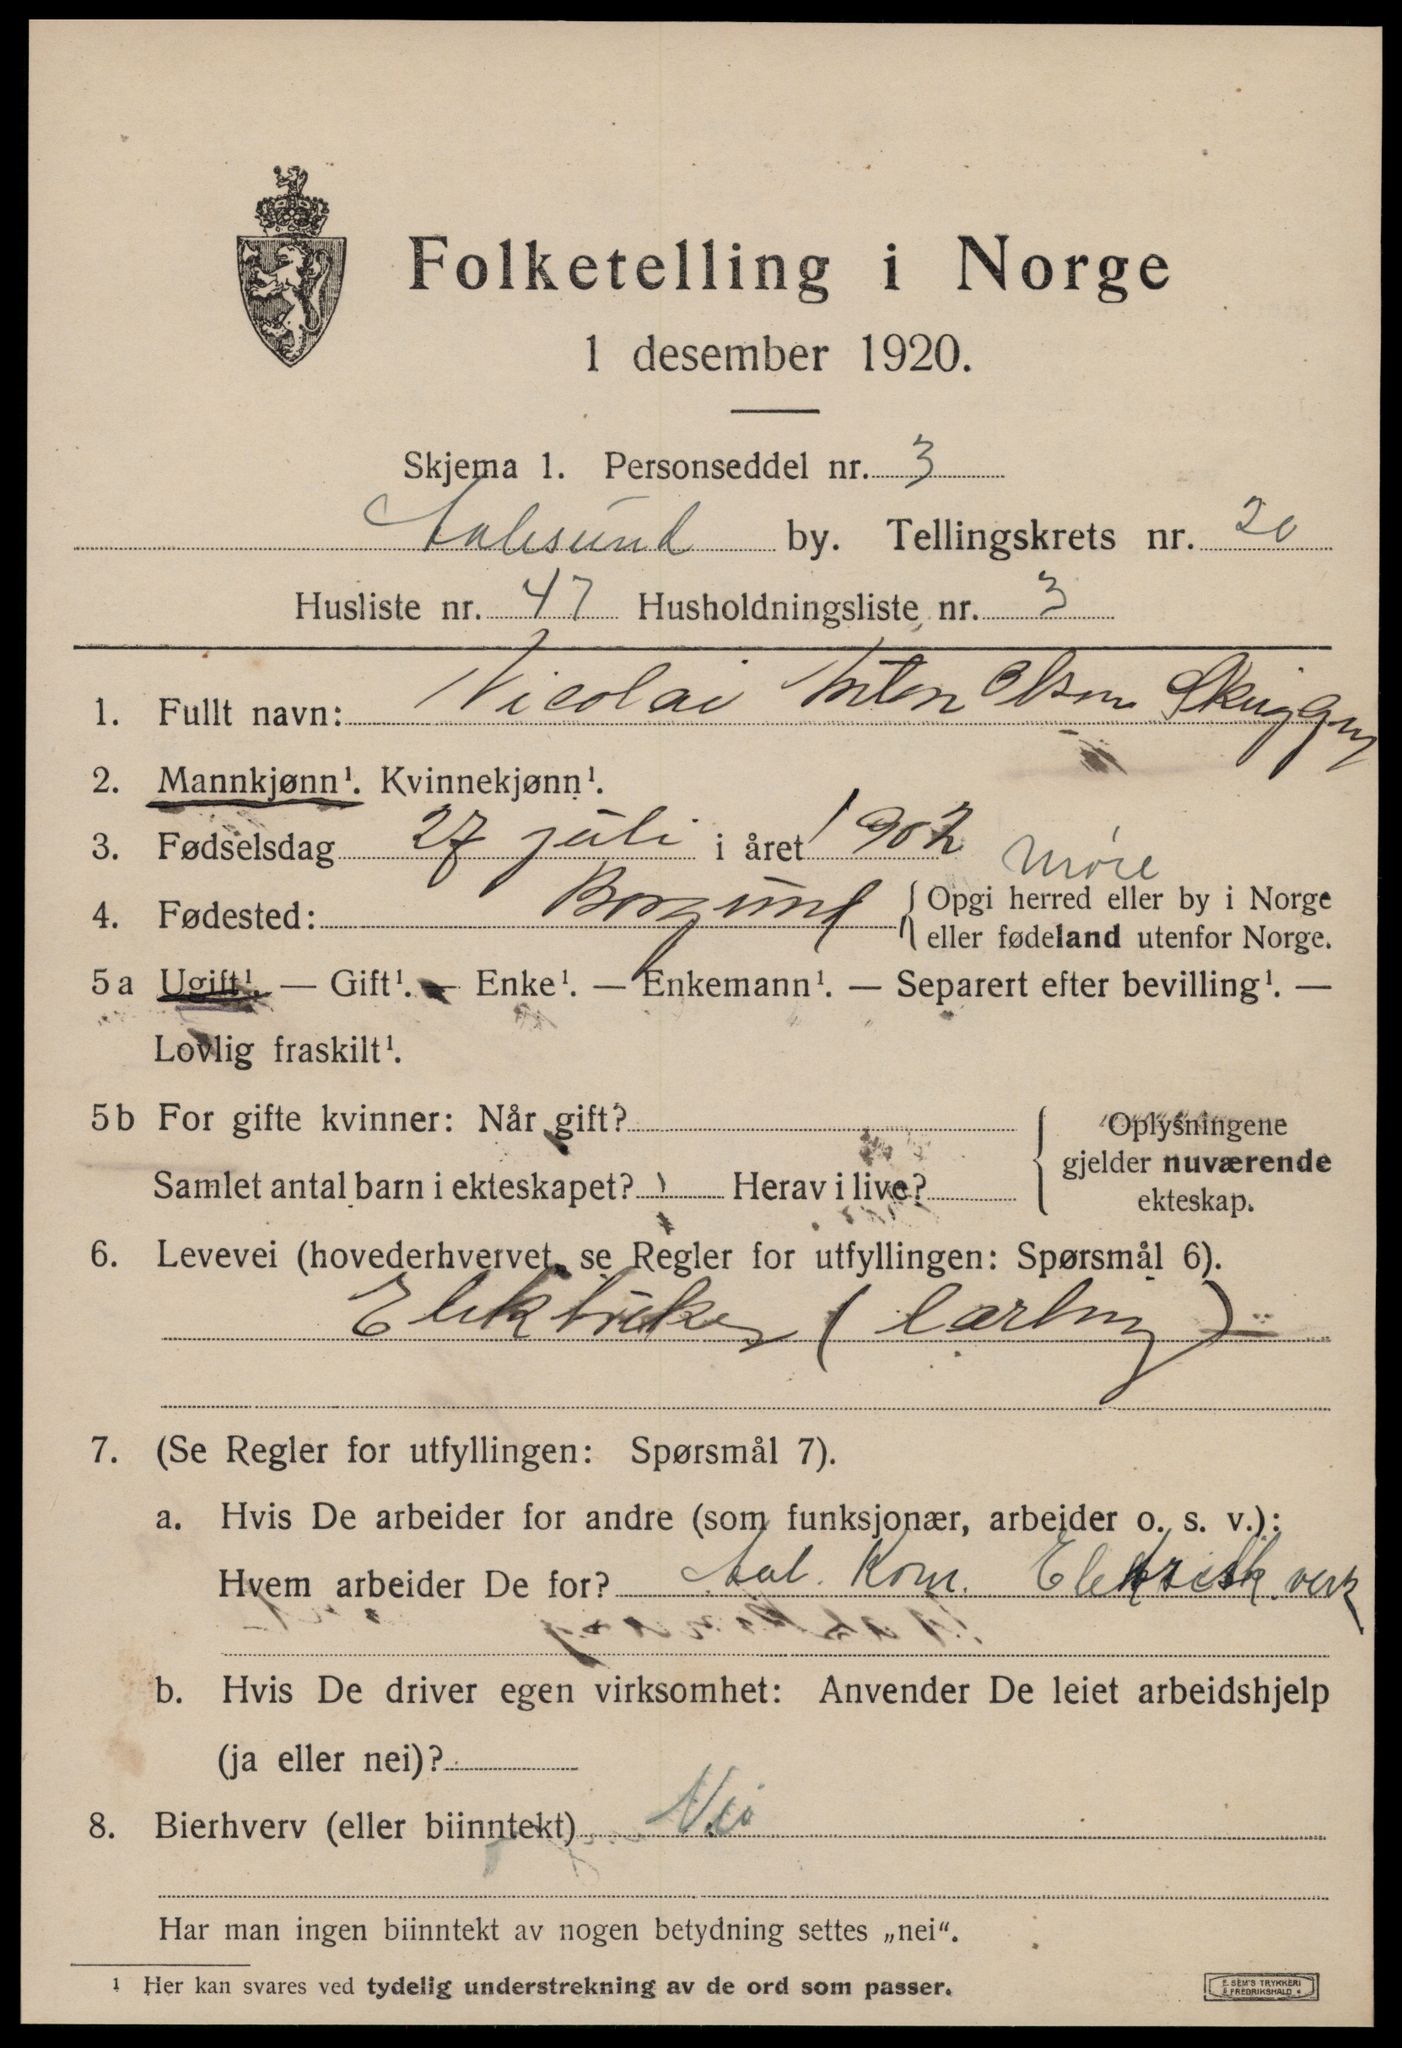 Folketelling i Norge
1 desember 1920.
Skjema 1. Personseddel nr. 3
Aalesund by. Tellingskrets nr. 20
Husliste nr. 47 Husholdningsliste nr. 3
1. Fullt navn: Nicolai Anton Olsen
2. Mannkjønn¹. Kvinnekjønn¹.
3. Fødselsdag 27 juli i året 1902
Møre
4. Fødested: Borgund { Opgi herred eller by i Norge
eller fødeland utenfor Norge.
5 a Ugift¹. — Gift¹. — Enke¹. — Enkemann¹. — Separert efter bevilling¹. —
Lovlig fraskilt¹.
5 b For gifte kvinner: Når gift?
Samlet antal barn i ekteskapet? Herav i live?
{ Oplysningene
gjelder nuværende
ekteskap.
6. Levevei (hovederhvervet, se Regler for utfyllingen: Spørsmål 6).
Elektriker (
)
7. (Se Regler for utfyllingen: Spørsmål 7).
a. Hvis De arbeider for andre (som funksjonær, arbeider o. s. v.):
Hvem arbeider De for? Aal. Kom. Elektrisk verk
b. Hvis De driver egen virksomhet: Anvender De leiet arbeidshjelp
(ja eller nei)?
8. Bierhverv (eller biinntekt) Nei
Har man ingen biinntekt av nogen betydning settes „nei“.
¹ Her kan svares ved tydelig understrekning av de ord som passer.
E. SEM'S TRYKKERI
FREDRIKSHALD